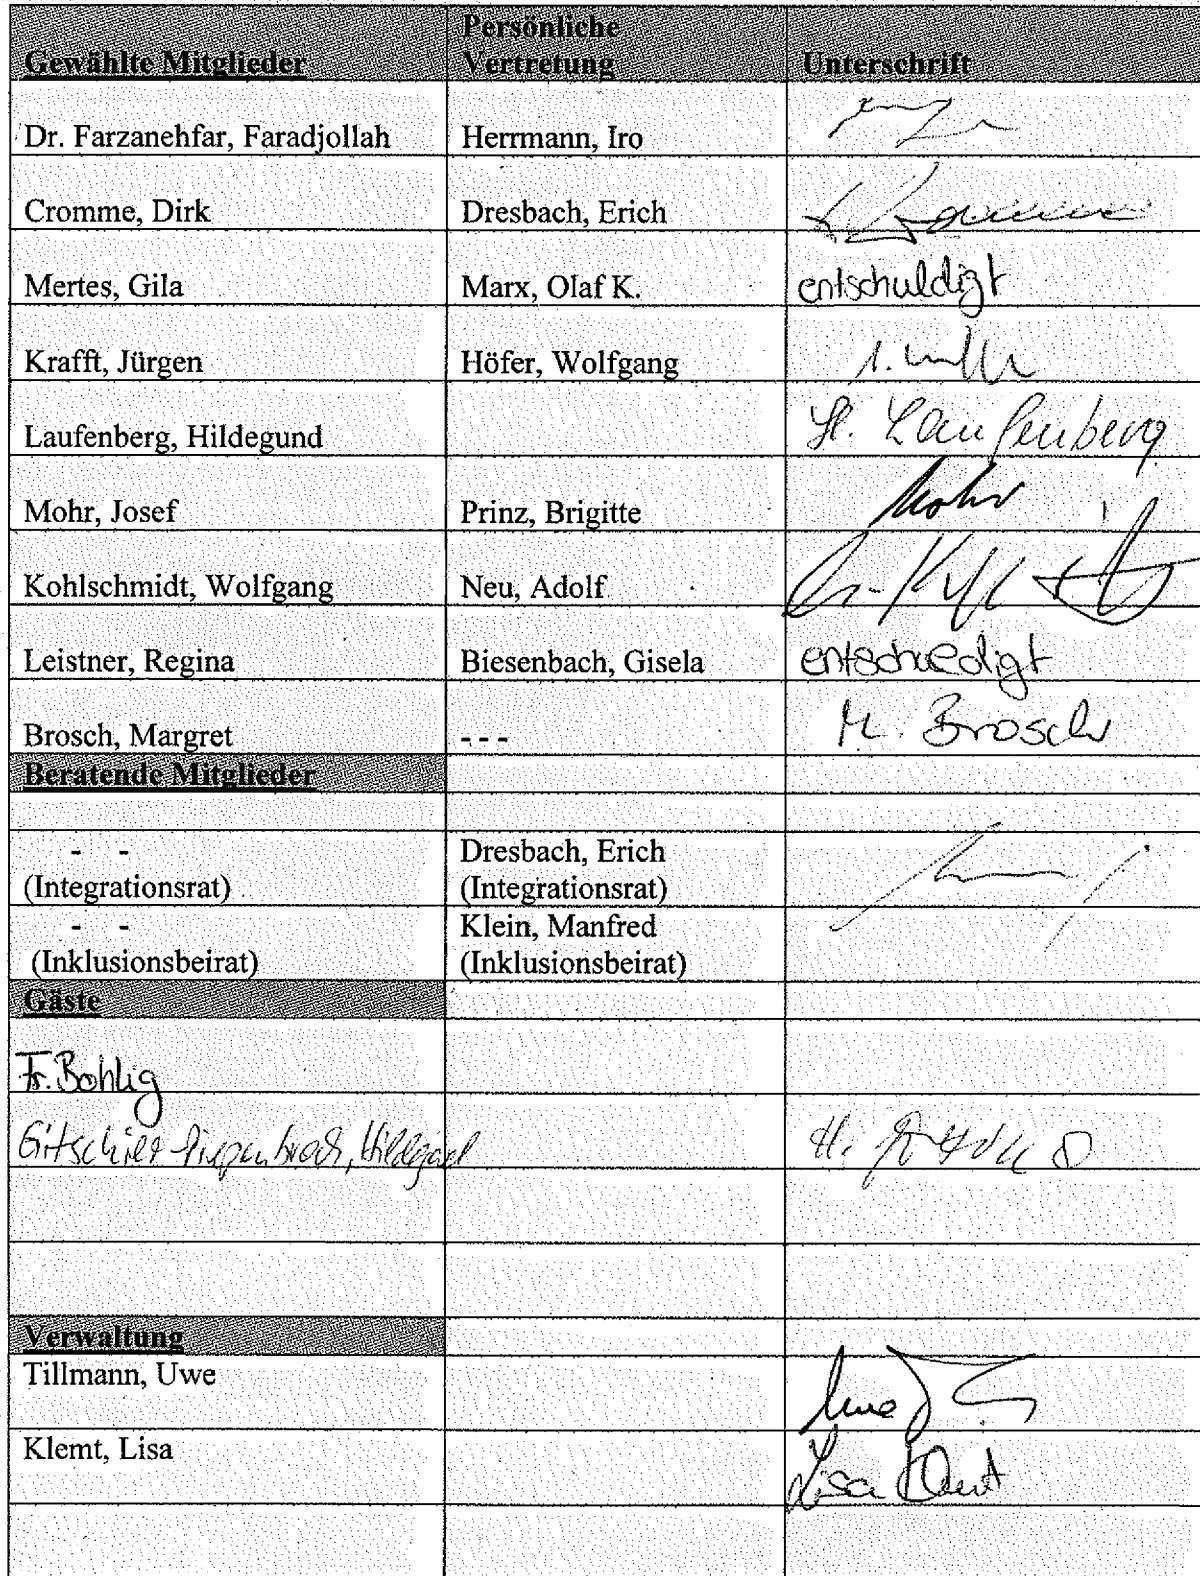 Gewählte Mitglieder
Persönliche
Vertretung
Unterschrift
Dr. Farzanehfar, Faradjollah
Herrmann, Iro
Cromme, Dirk
Dresbach, Erich
Mertes, Gila
Marx, Olaf K.
entschuldigt
Krafft, Jürgen
Höfer, Wolfgang
Laufenberg, Hildegund
H. Laufenberg
Mohr, Josef
Prinz, Brigitte
Mohr
Kohlschmidt, Wolfgang
Neu, Adolf
Leistner, Regina
Biesenbach, Gisela
entschuldigt
Brosch, Margret
- - -
M. Brosch
Beratende Mitglieder
- -
(Integrationsrat)
Dresbach, Erich
(Integrationsrat)
- -
(Inklusionsbeirat)
Klein, Manfred
(Inklusionsbeirat)
Gäste
Fr. Bohlig
Hildegard
H.
Verwaltung
Tillmann, Uwe
Uwe
Klemt, Lisa
Lisa Klemt